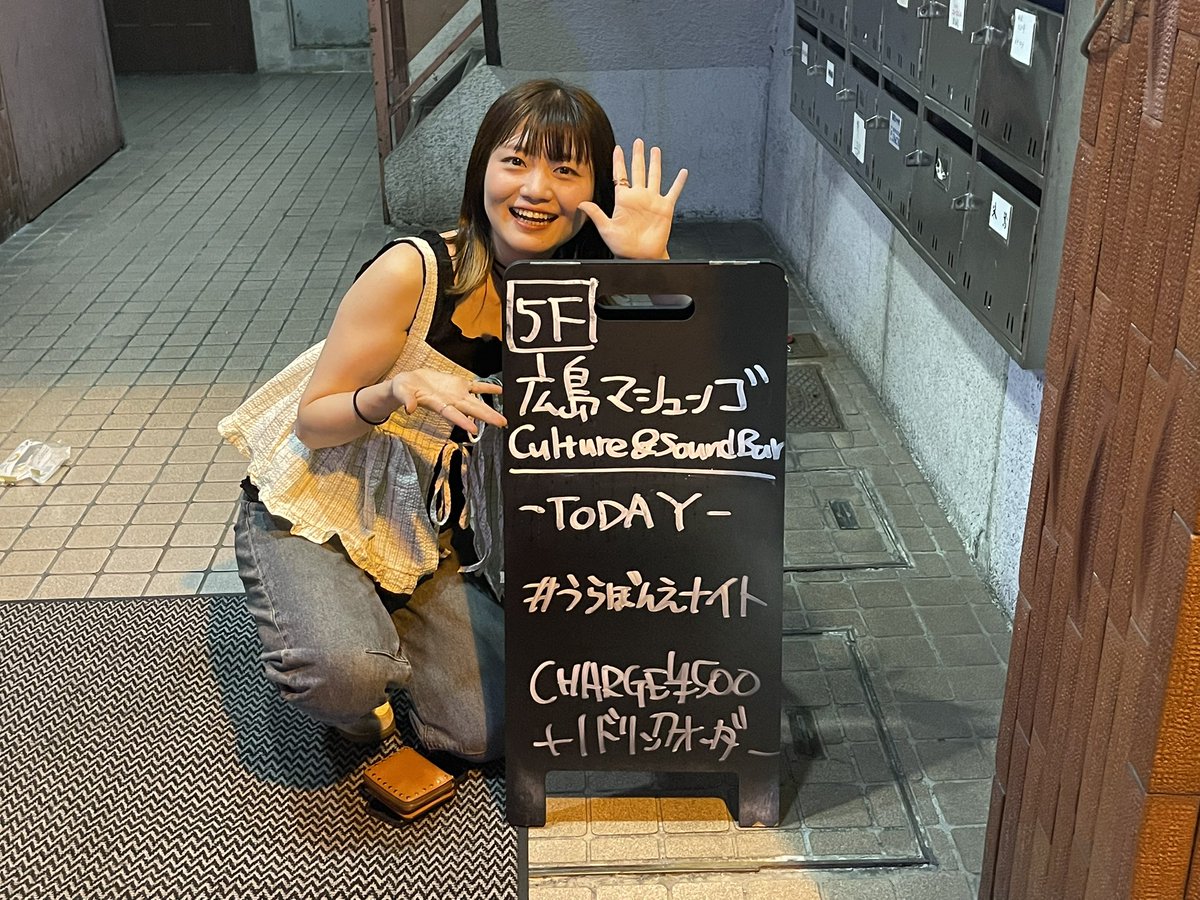 5F
広島マシューンゴ
Culture&SoundBar
-TODAY-
#うらぼんえナイト
CHARGE¥500
+1ドリンクオーダー